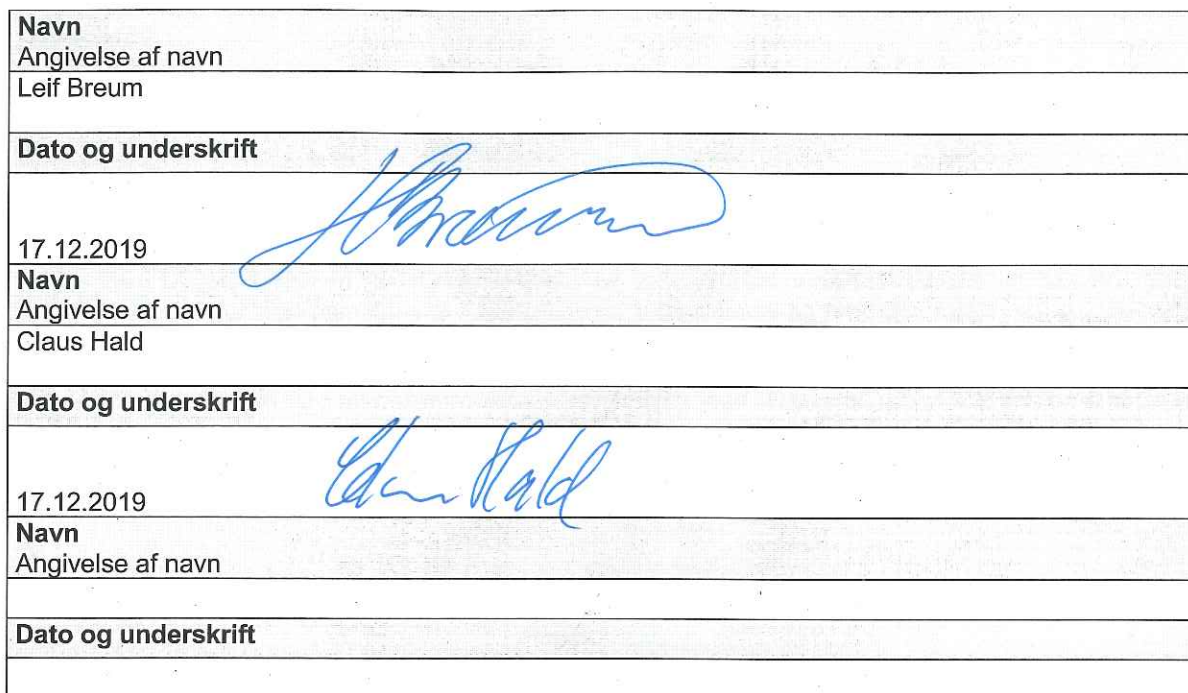 Navn
Angivelse af navn
Leif Breum
Dato og underskrift
17.12.2019
Navn
Angivelse af navn
Claus Hald
Dato og underskrift
17.12.2019 Hald
Navn
Angivelse af navn
Dato og underskrift